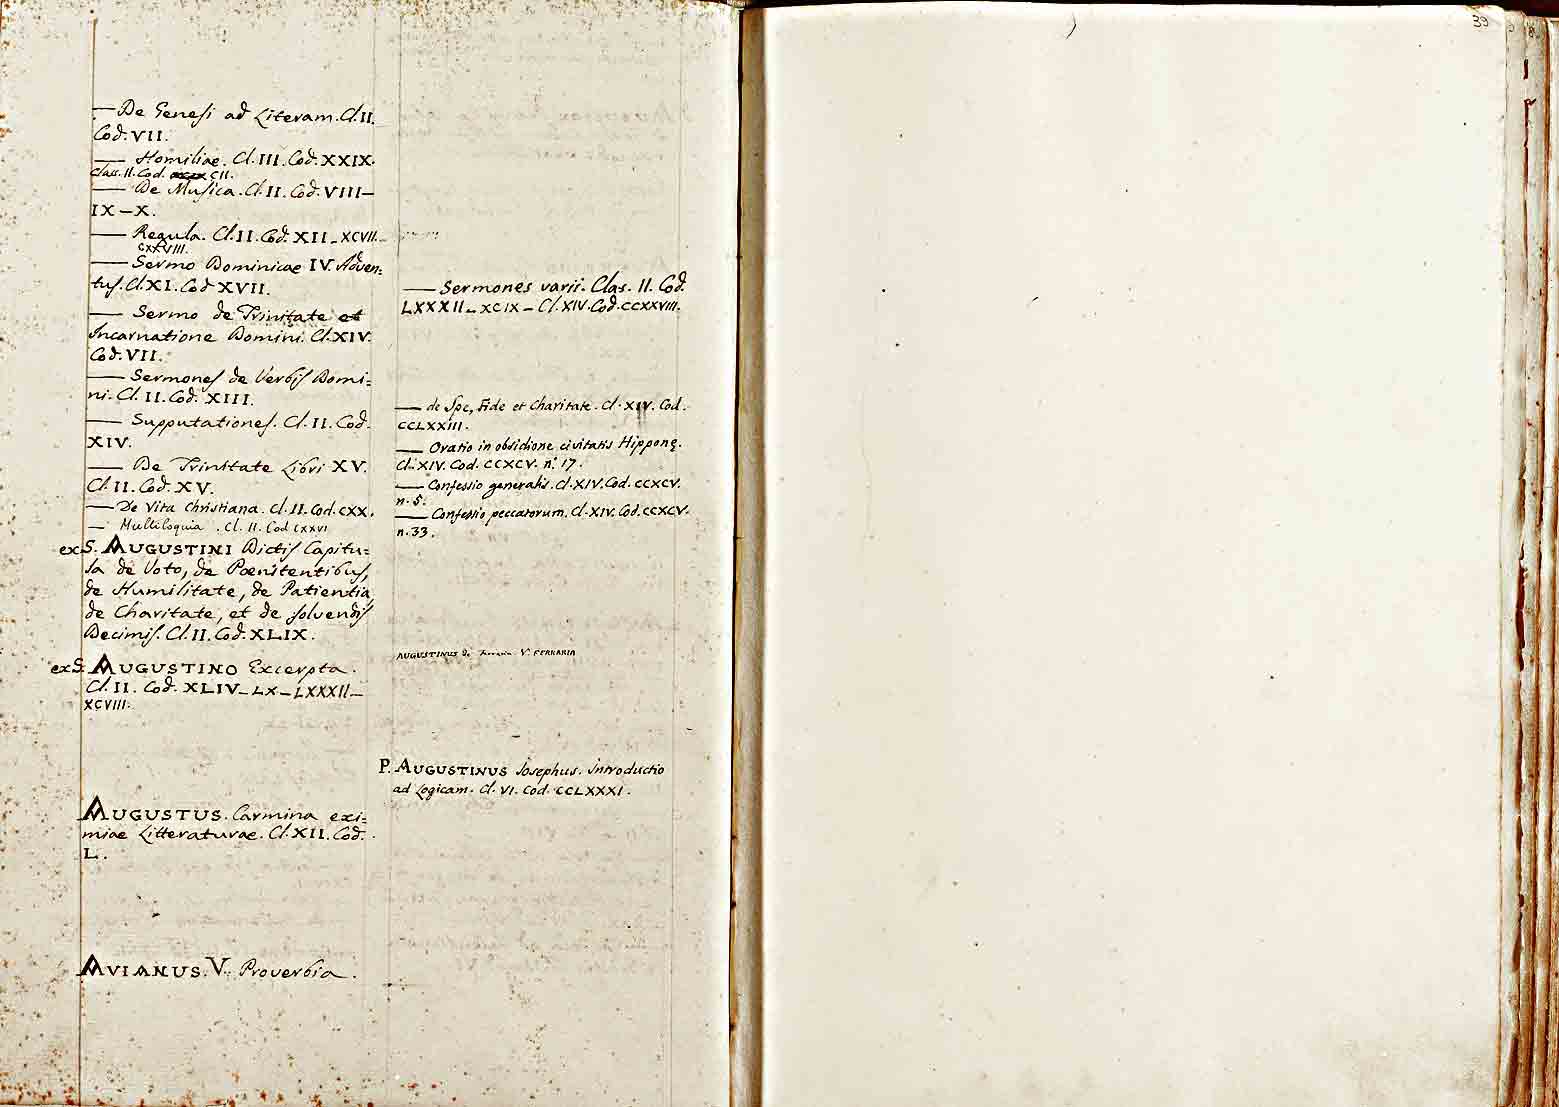 — De Genesi ad Literam. Cl. II.
Cod. VII.
— Homiliae. Cl. III. Cod. XXIX.
Clas. II. Cod. CII.
— De Musica. Cl. II. Cod. VIII–
IX – X.
— Regula. Cl. II. Cod. XII – XCVII.
CXXVIII.
— Sermo Dominicae IV. Adven=
tus. Cl. XI. Cod XVII.
— Sermo de Trinitate et
Incarnatione Domini. Cl. XIV.
Cod. VII.
— Sermones de Verbis Domi=
ni. Cl. II. Cod. XIII.
— Supputationes. Cl. II. Cod.
XIV.
— De Trinitate Libri XV.
Cl. II. Cod. XV.
— De Vita Christiana. Cl. II. Cod. CXX.
— Multiloquia. Cl. II. Cod CXXVI
ex S. AUGUSTINI Dictis Capitu=
la de Voto, de Poenitentibus,
de Humilitate, de Patientia,
de Charitate, et de solvendis
Decimis. Cl. II. Cod. XLIX.
ex S. AUGUSTINO Excerpta.
Cl. II. Cod. XLIV – LX – LXXXII –
XCVIII.
AUGUSTUS. Carmina exi=
miae Litteraturae. Cl. XII. Cod.
L.
AVIANUS. V. Proverbia.
— Sermones varii. Clas. II. Cod.
LXXXII – XCIX – Cl. XIV. Cod. CCXXVIII.
— de Spe, Fide et Charitate. Cl. XIV. Cod.
CCLXXIII.
— Oratio in obsidione civitatis Hipponę.
Cl. XIV. Cod. CCXCV. n.° 17.
— Confessio generalis. Cl. XIV. Cod. CCXCV.
n. 5.
— Confessio peccatorum. Cl. XIV. Cod. CCXCV.
n. 33.
AUGUSTINUS de V. FERRARIA
P. AUGUSTINUS Josephus. Introductio
ad Logicam. Cl. VI. Cod. CCLXXXI.
39